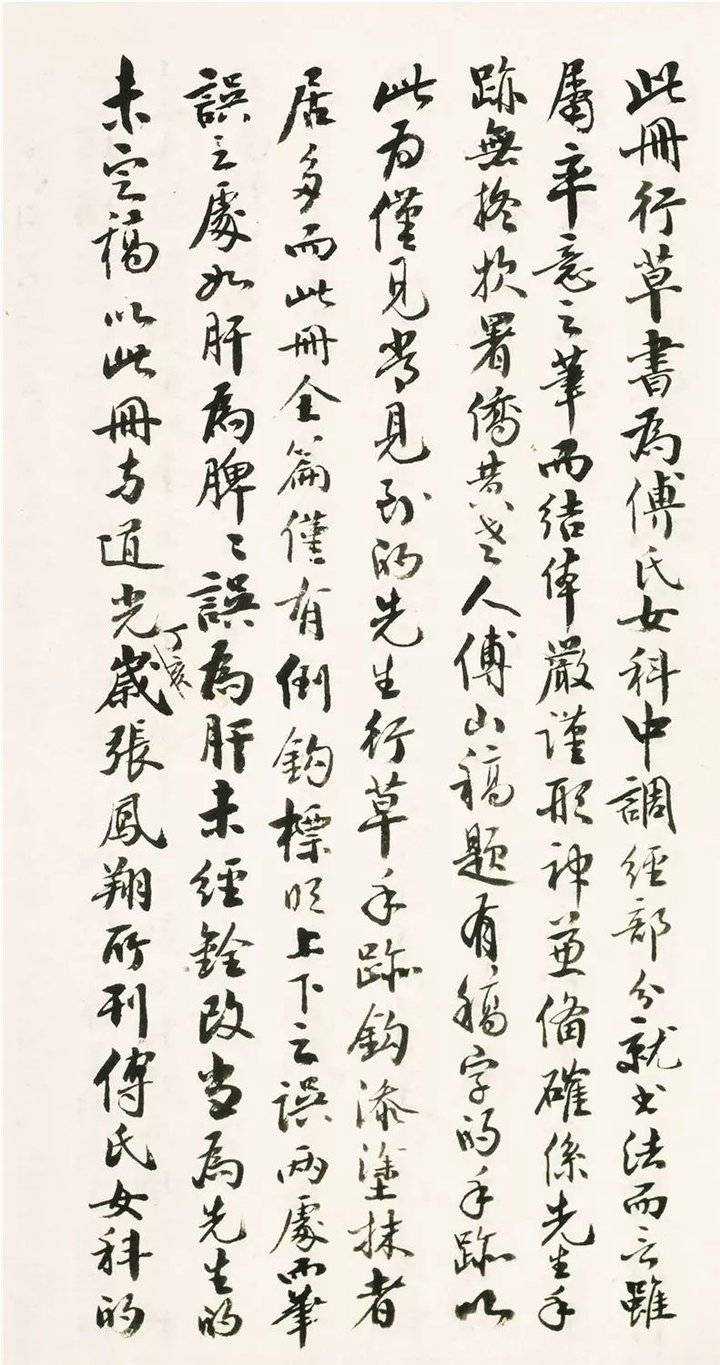 此冊行草書為傅氏女科中調經部分就书法而言雖
屬率意之筆而結体嚴謹形神兼備確係先生手
跡無署僑黄老人傅山稿題有稿字的手跡以
此为僅見常見到的先生行草手跡鈎添塗抹者
居多而此冊全篇僅有倒鈎標明上下之誤兩處而筆
誤之處如肝為脾〻誤為肝未經銓改当為先生的
未定稿以此冊与道光丁亥歲張鳳翔所刊傅氏女科的